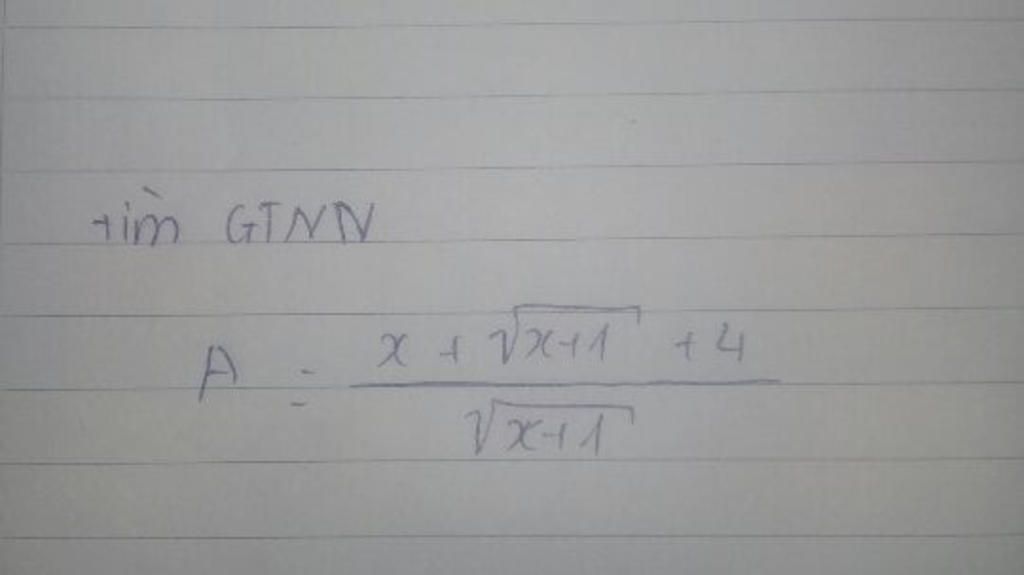 tìm GTNN
A = \frac{x + \sqrt{x+1} + 4}{\sqrt{x+1}}